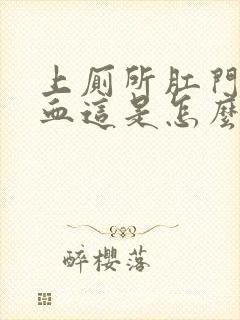 上廁所肛門
血這是怎麼
醉櫻落